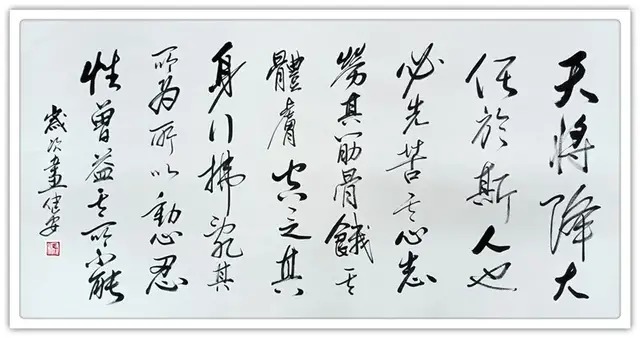 天將降大
任於斯人也
必先苦其心志
勞其筋骨餓其
體膚空乏其
身行拂亂其
所為所以動心忍
性曾益其所不能